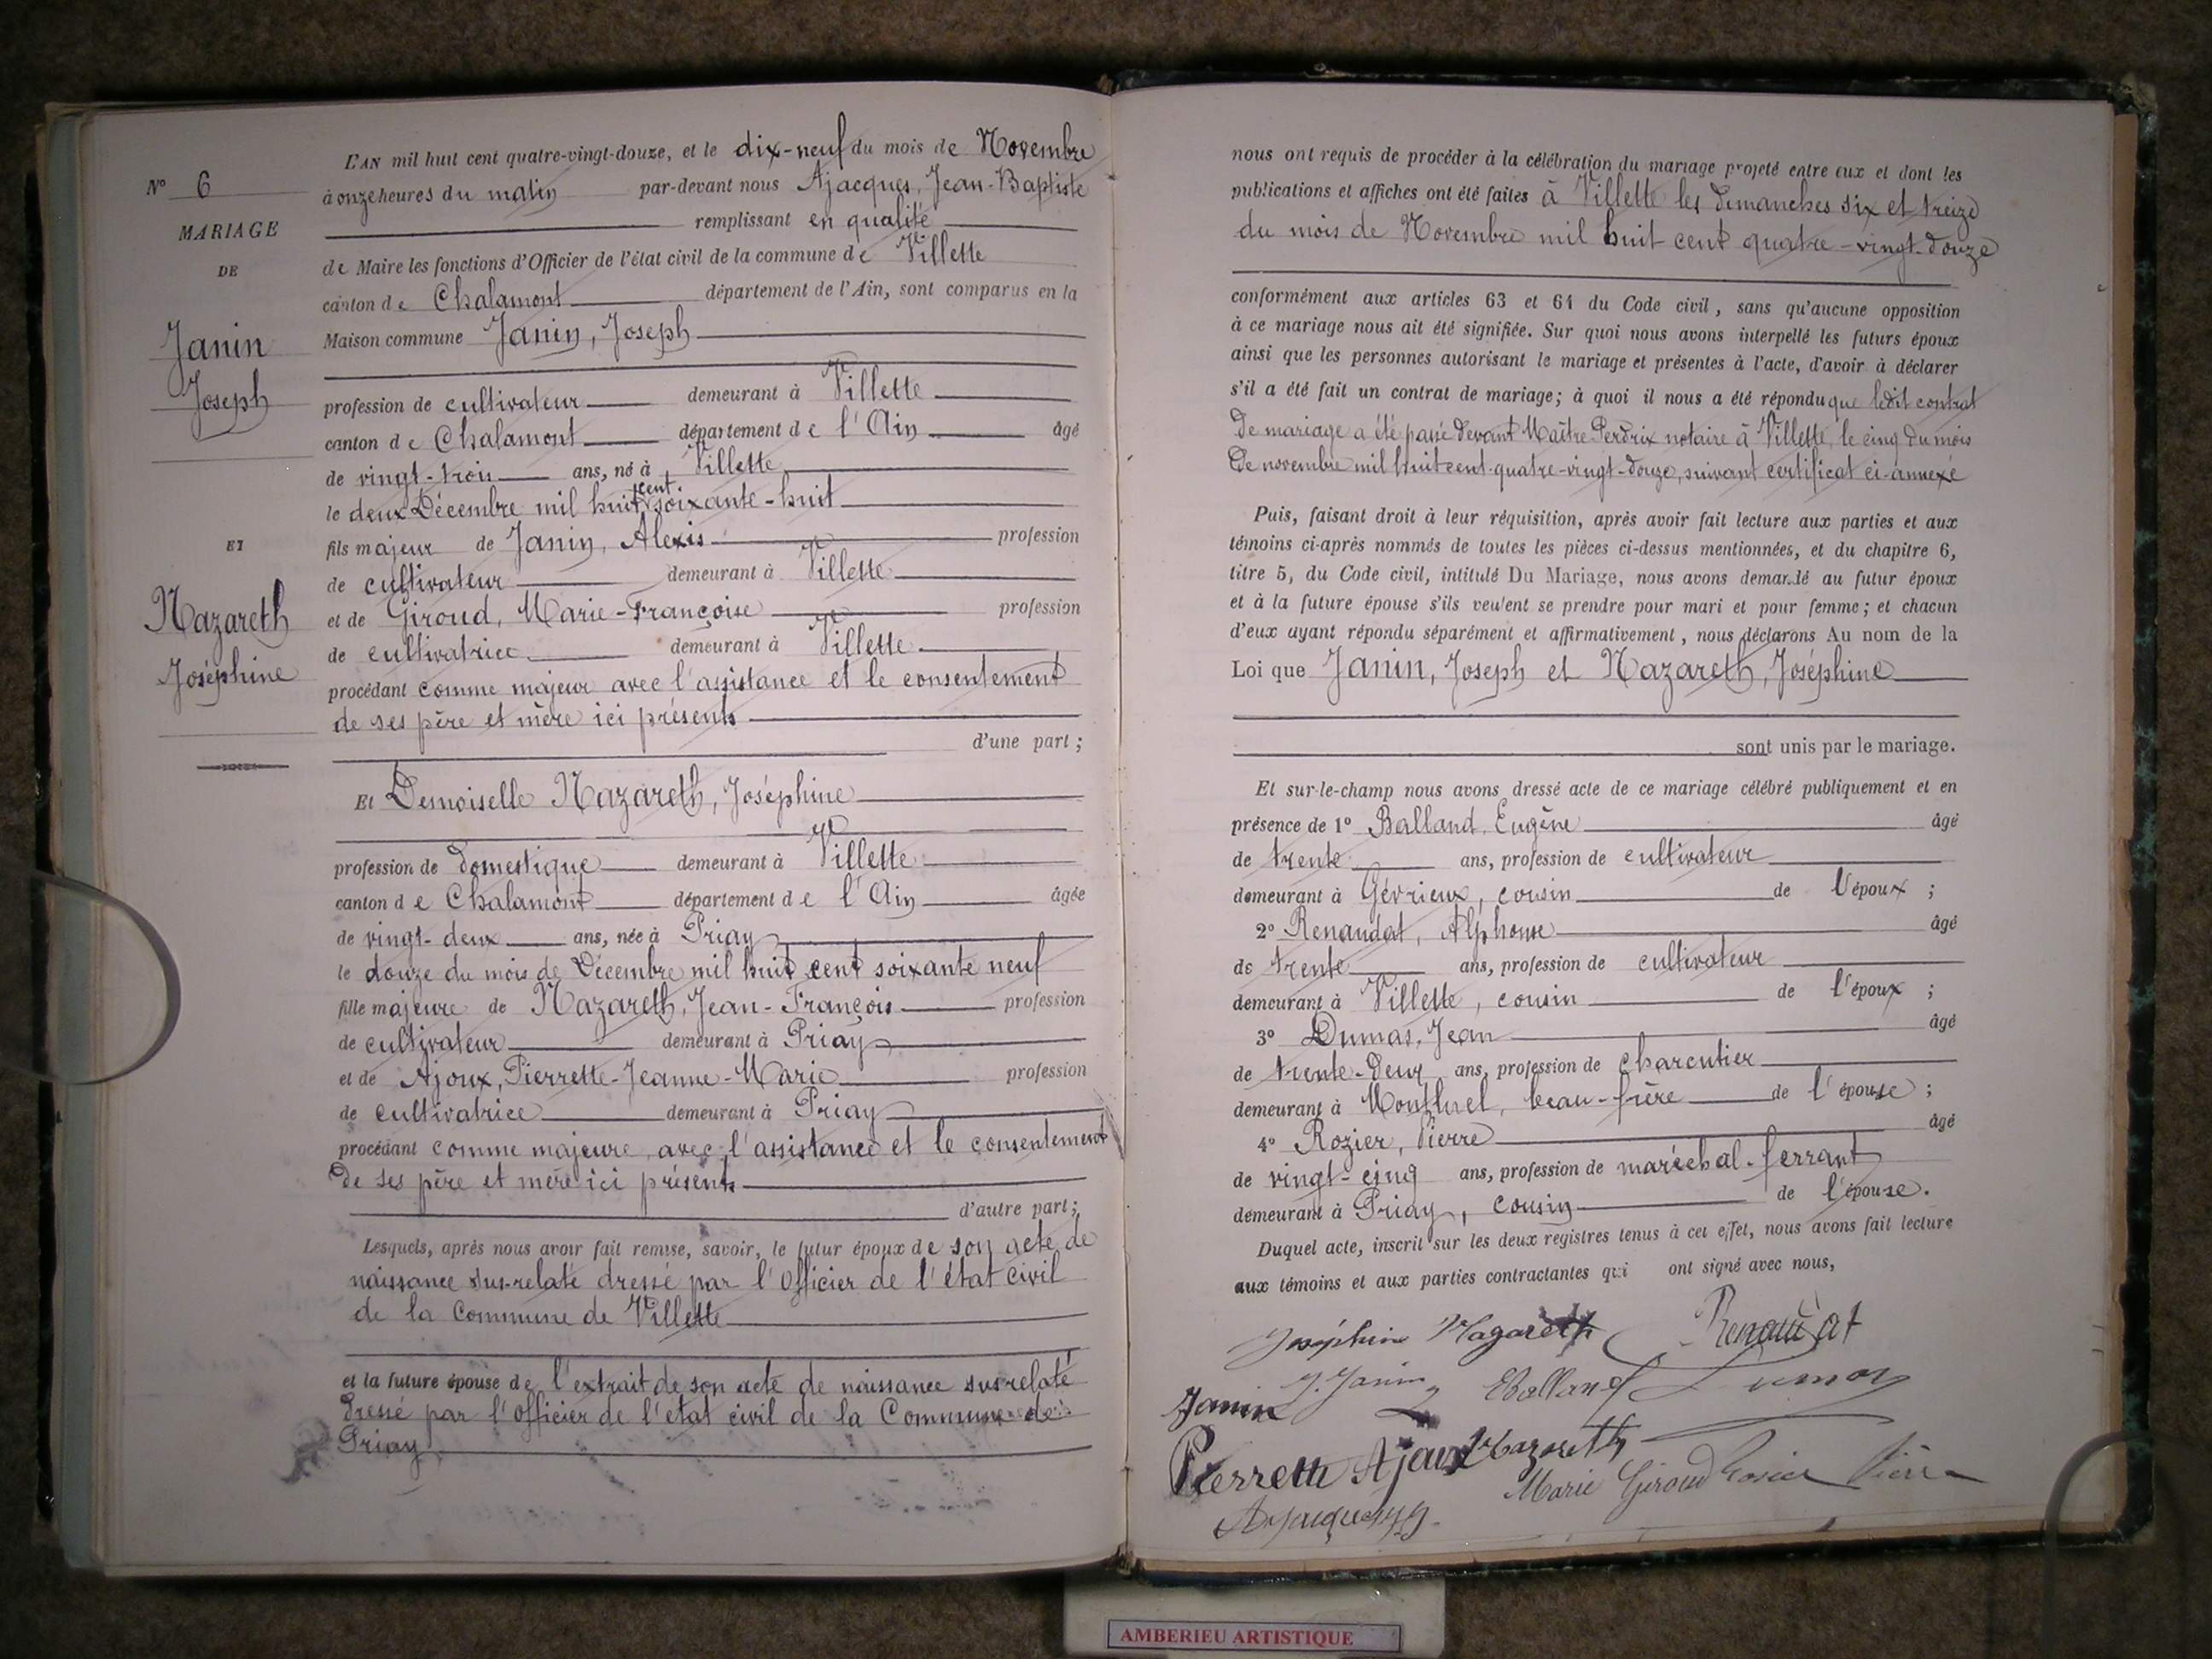 L'AN mil huit cent quatre-vingt-douze, et le dix-neuf du mois de Novembre
N° 6
à onze heures du matin par-devant nous Ajacques, Jean-Baptiste
MARIAGE
remplissant en qualité
DE
de Maire les fonctions d'Officier de l'état civil de la commune de Villette
canton de Chalamont département de l'Ain, sont comparus en la
Janin
Maison commune Janin, Joseph
Joseph
profession de cultivateur demeurant à Villette
canton de Chalamont département de l'Ain âgé
de vingt-trois ans, né à Villette
le deux Décembre mil huit cent soixante-huit
ET
fils majeur de Janin, Alexis profession
de cultivateur demeurant à Villette
Nazareth
et de Giroud, Marie-Françoise profession
de cultivatrice demeurant à Villette
Joséphine
procédant comme majeur avec l'assistance et le consentement
de ses père et mère ici présents
d'une part;
Et Demoiselle Nazareth, Joséphine
profession de domestique demeurant à Villette
canton de Chalamont département de l'Ain âgée
de vingt-deux ans, née à Priay
le douze du mois de Décembre mil huit cent soixante neuf
fille majeure de Nazareth, Jean-François profession
de cultivateur demeurant à Priay
et de Ajoux, Pierrette-Jeanne-Marie profession
de cultivatrice demeurant à Priay
procédant comme majeure, avec l'assistance et le consentement
de ses père et mère ici présents
d'autre part;
Lesquels, après nous avoir fait remise, savoir, le futur époux de son acte de
naissance sus-relaté dressé par l'Officier de l'état civil
de la Commune de Villette
et la future épouse de l'extrait de son acte de naissance susrelaté
dressé par l'officier de l'état civil de la Commune de
Priay
nous ont requis de procéder à la célébration du mariage projeté entre eux et dont les
publications et affiches ont été faites à Villette les dimanches six et treize
du mois de Novembre mil huit cent quatre-vingt-douze
conformément aux articles 63 et 64 du Code civil, sans qu'aucune opposition
à ce mariage nous ait été signifiée. Sur quoi nous avons interpellé les futurs époux
ainsi que les personnes autorisant le mariage et présentes à l'acte, d'avoir à déclarer
s'il a été fait un contrat de mariage; à quoi il nous a été répondu que ledit contrat
de mariage a été passé devant Maître Perdrix notaire à Villette, le cinq du mois
de novembre mil huit cent quatre-vingt-douze, suivant certificat ci-annexé
Puis, faisant droit à leur réquisition, après avoir fait lecture aux parties et aux
témoins ci-après nommés de toutes les pièces ci-dessus mentionnées, et du chapitre 6,
titre 5, du Code civil, intitulé Du Mariage, nous avons demandé au futur époux
et à la future épouse s'ils veulent se prendre pour mari et pour femme; et chacun
d'eux ayant répondu séparément et affirmativement, nous déclarons Au nom de la
Loi que Janin, Joseph et Nazareth, Joséphine
sont unis par le mariage.
Et sur-le-champ nous avons dressé acte de ce mariage célébré publiquement et en
présence de 1° Balland, Eugène âgé
de trente ans, profession de cultivateur
demeurant à Gévrieux, cousin de l'époux ;
2° Renaudat, Alphonse âgé
de trente ans, profession de cultivateur
demeurant à Villette, cousin de l'époux ;
3° Dumas, Jean âgé
de trente-deux ans, profession de charentier
demeurant à Montluel, beau-frère de l'épouse ;
4° Rozier, Pierre âgé
de vingt-cinq ans, profession de maréchal-ferrant
demeurant à Priay, cousin de l'épouse.
Duquel acte, inscrit sur les deux registres tenus à cet effet, nous avons fait lecture
aux témoins et aux parties contractantes qui ont signé avec nous,
Joséphine Nazareth Renaudat
Janin J. Janin EBalland Dumas
Pierrette Ajoux Nazareth
Marie Giroud Rosier Pierre
AMBERIEU ARTISTIQUE